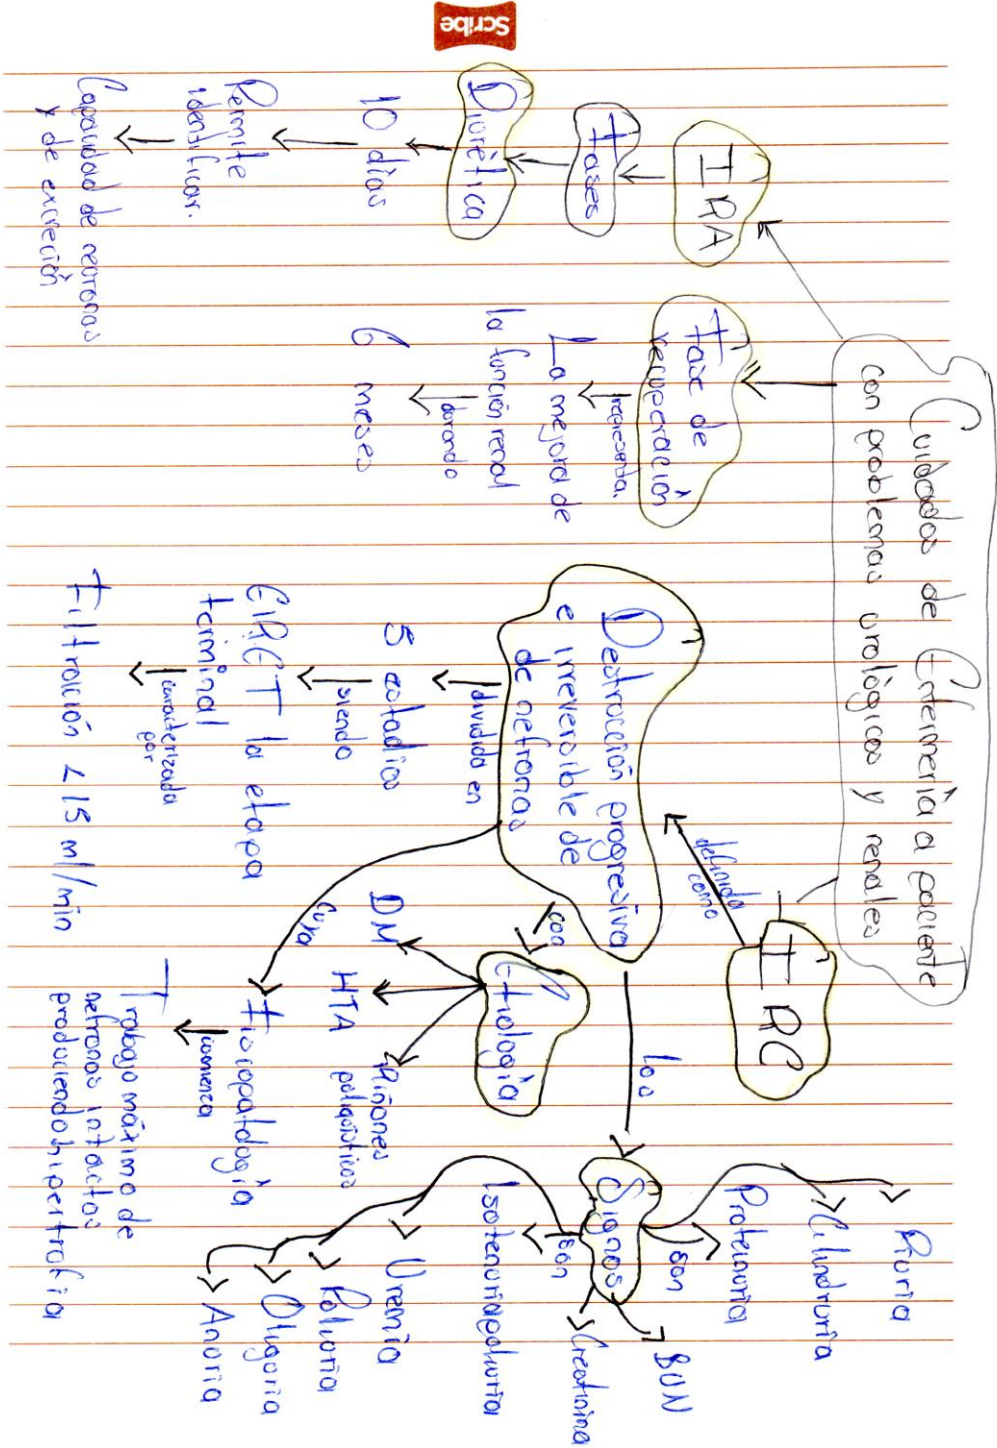 Scribe
Cuidados de Enfermería a paciente
con problemas urológicos y renales
IRA
Fases
Diurética
10 días
Permite
identificar.
Capacidad de neuronas
y de excreción
Fase de
recuperación
representa.
La mejora de
la función renal
durando
6 meses
IRC
definida
como
Destrucción progresiva
e irreversible de
de nefronas
dividida en
5 estadios
siendo
ERCT la etapa
terminal
caracterizada
por
Filtración < 15 ml/min
con
Etiología
DM
HTA
Riñones
poliquísticos
cuya
Fisiopatología
comienza
Trabajo máximo de
nefronas intactas
produciendo hipertrofia
Los
Signos
son
Piuria
Cilindruria
Proteinuria
BUN
Creatinina
son
Isotenuriapoliuria
Uremia
Poliuria
Oliguria
Anuria